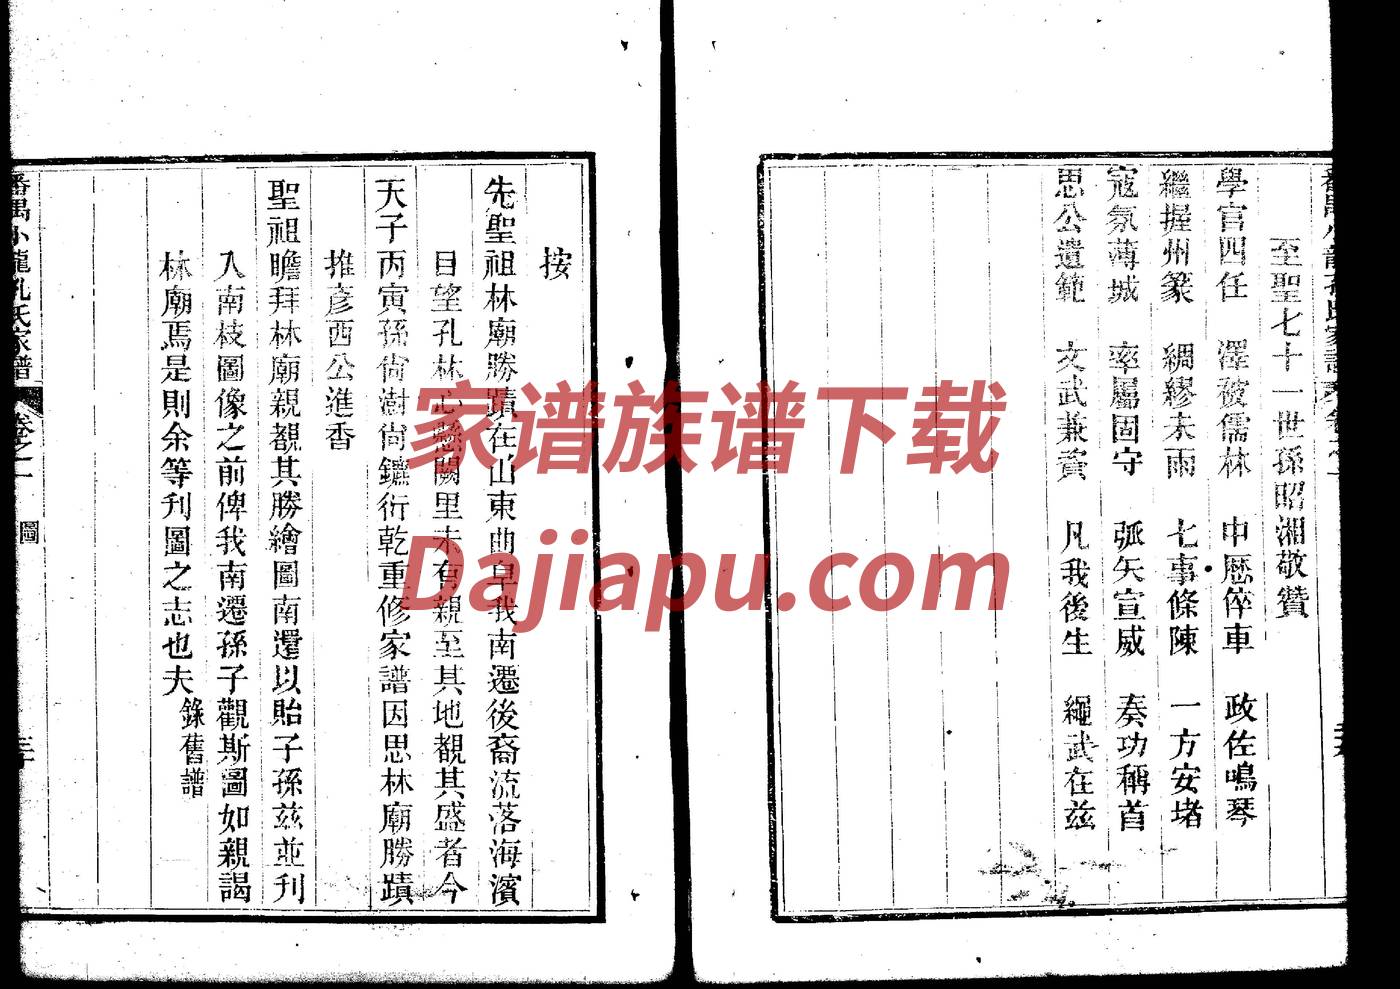 至聖七十一世孫昭湘敬贊
學官四任 澤被儒林 中歷倅車 政佐鳴琴
繼握州篆 綢繆未雨 七事條陳 一方安堵
寇氛薄城 率屬固守 弧矢宣威 奏功稱首
思公遺範 文武兼資 凡我後生 繩武在兹
按
先聖祖林廟勝蹟在山東曲阜我南遷後裔流落海濱
目望孔林心懸闕里未有親至其地覩其盛者今
天子丙寅孫尙澍尙鑣衍乾重修家譜因思林廟勝蹟
推彦西公進香
聖祖瞻拜林廟親覩其勝繪圖南還以貽子孫兹並刋
入南枝圖像之前俾我南遷孫子觀斯圖如親謁
林廟焉是則余等刋圖之志也夫 錄舊譜
番禺小龍孔氏家譜 卷之一 圖
家谱族谱下载
Dajiapu.com